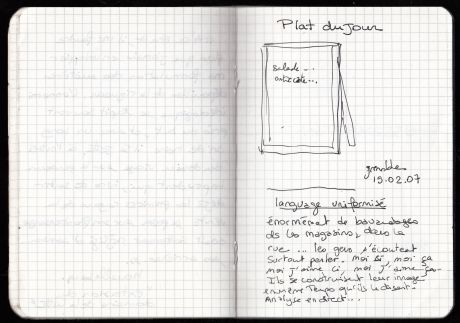 Plat du jour
salade ...
entrecôte ...
grenoble
19.02.07
language uniformisé
énormément de bavardages
ds les magasins, dans la
rue ... les gens s'écoutent
surtout parler. moi ci, moi ça
moi j'aime ci, moi j'aime ça.
Ils se construisent leur image
en même temps qu'ils le disent.
Analyse en direct...